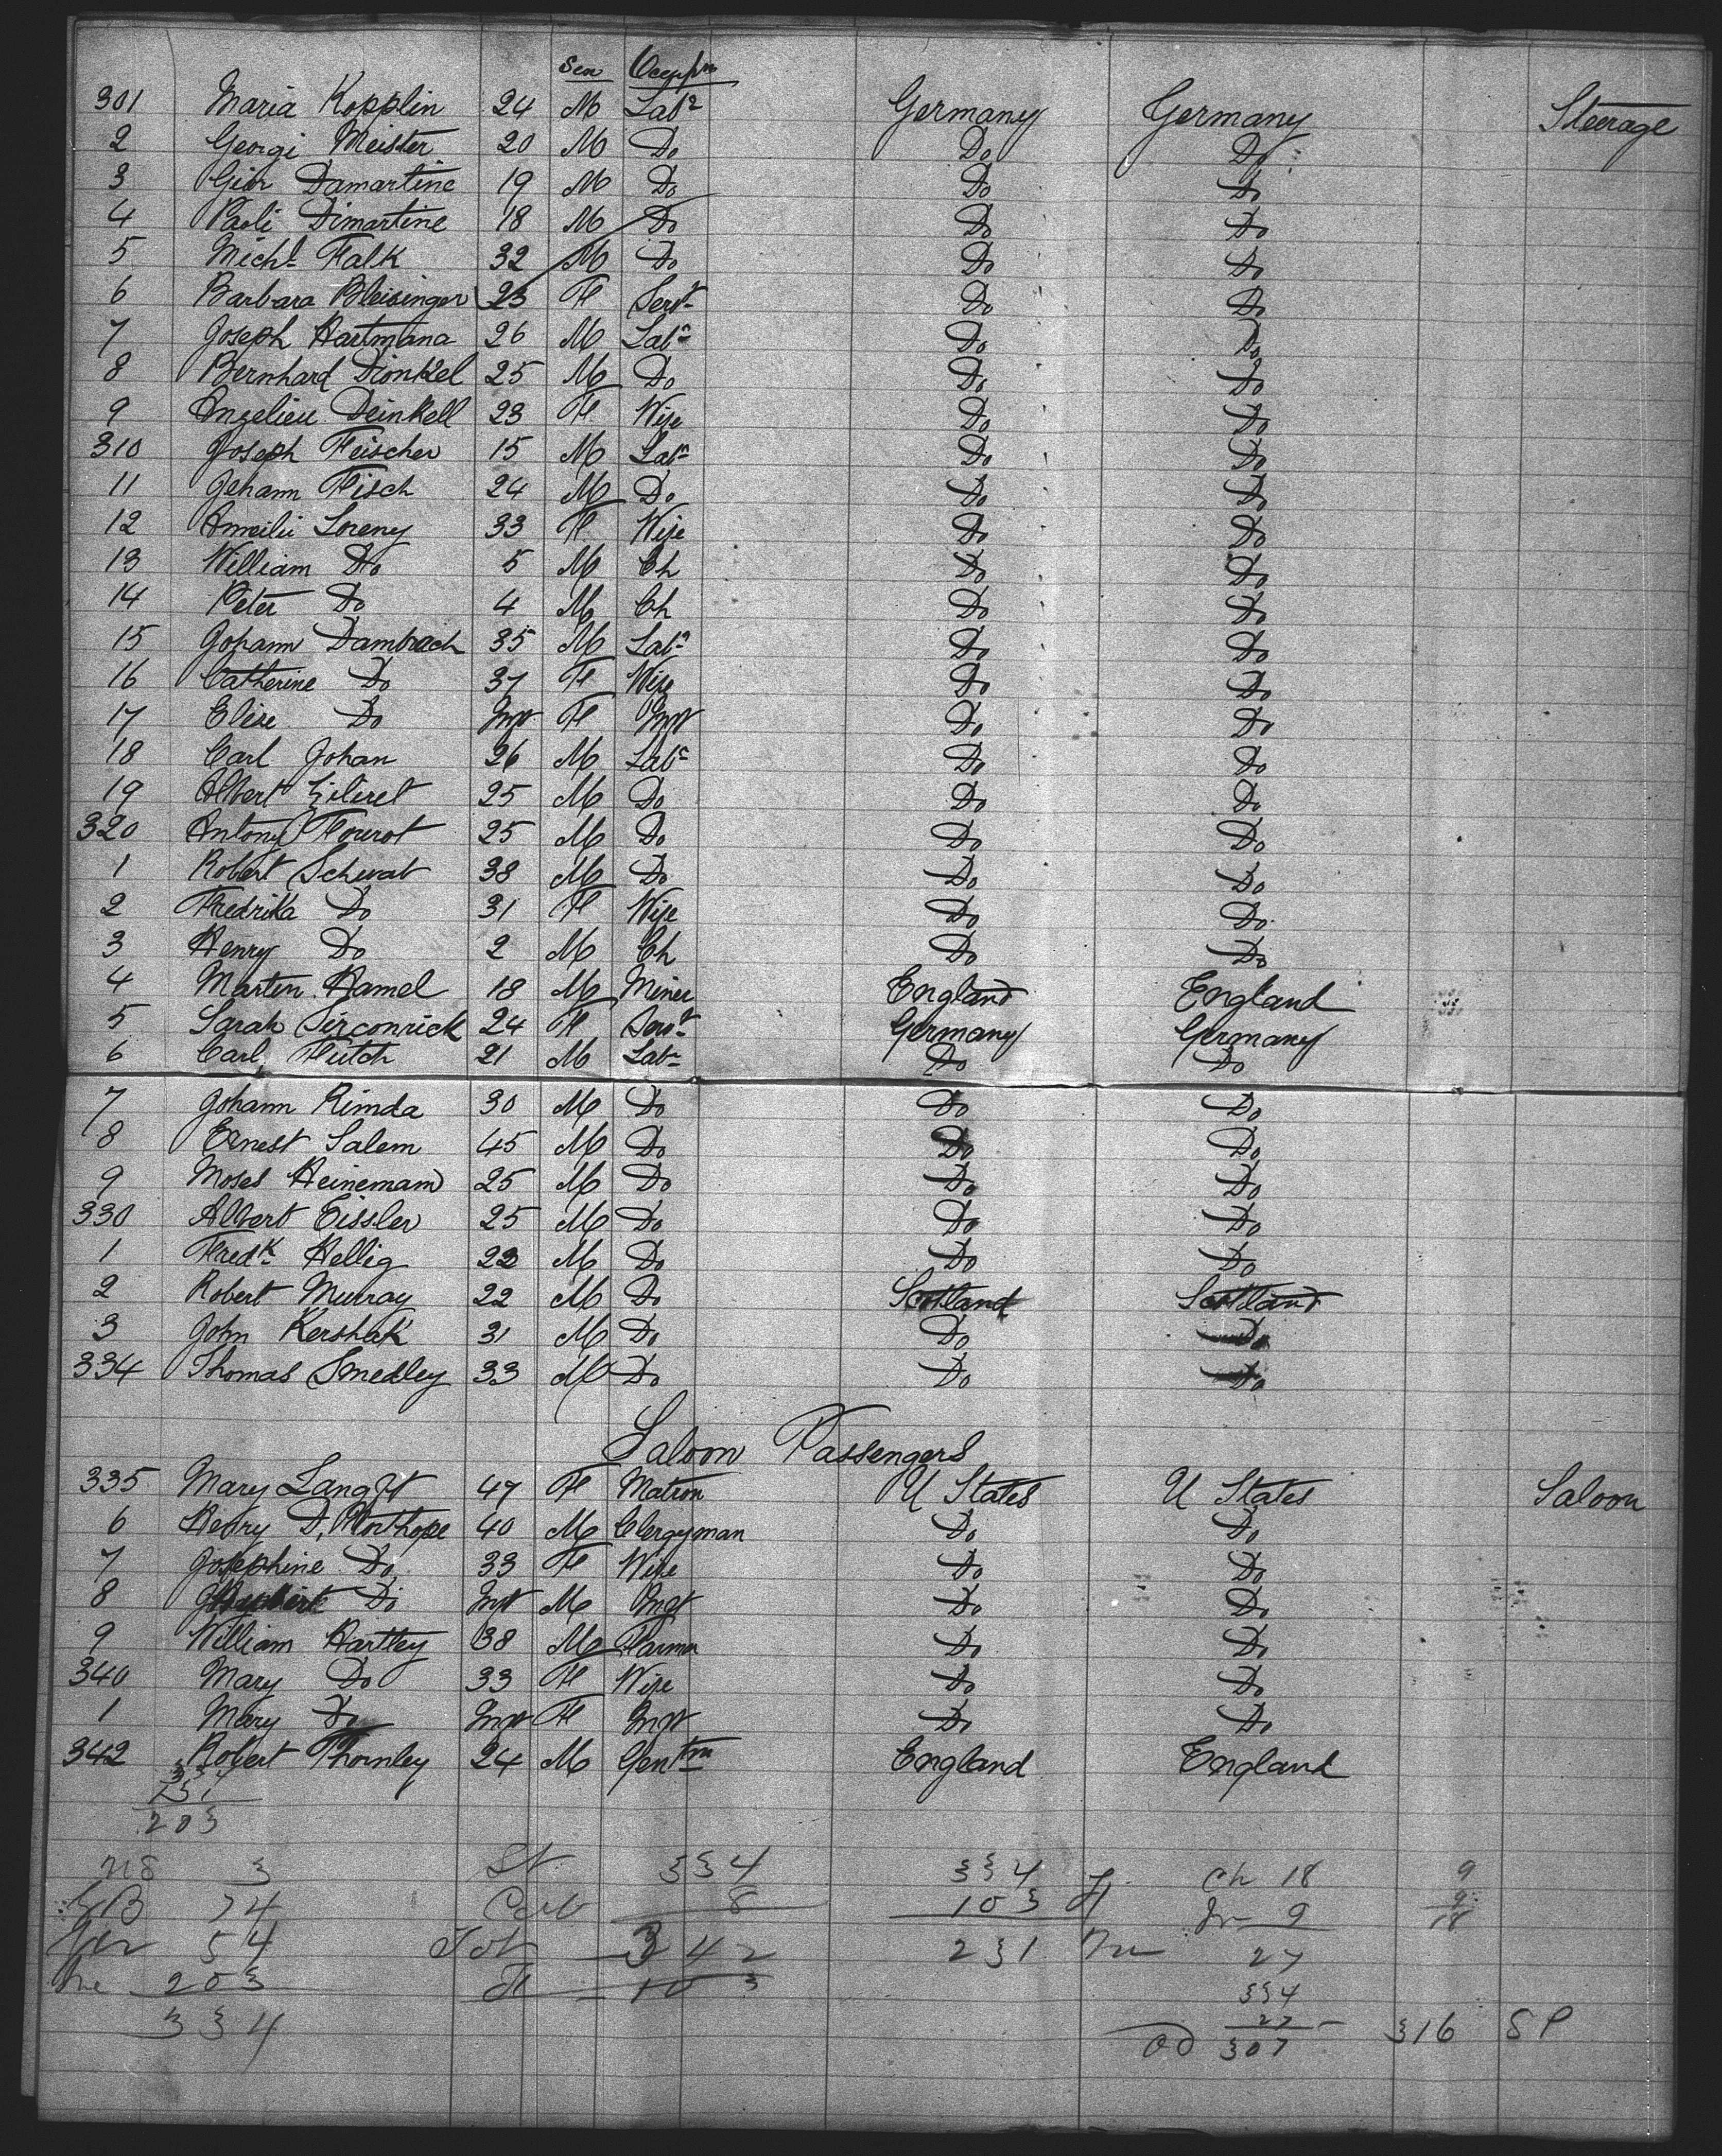 Sex Occupn
301 Maria Kopplin 24 M Labr Germany Germany Steerage
2 Georgi Meister 20 M Do Do Do
3 Gior Damartine 19 M Do Do Do
4 Paoli Dimartine 18 M Do Do Do
5 Michl Falk 32 M Do Do Do
6 Barbara Bleisinger 23 F Servt Do Do
7 Joseph Hartmana 26 M Labr Do Do
8 Bernhard Dionkel 25 M Do Do Do
9 Angelieu Deinkell 23 F Wife Do Do
310 Joseph Fleischer 15 M Labr Do Do
11 Johann Fisch 24 M Do Do Do
12 Ameilii Loreny 33 F Wife Do Do
13 William Do 5 M Ch Do Do
14 Peter Do 4 M Ch Do Do
15 Johann Dambach 35 M Labr Do Do
16 Catherine Do 37 F Wife Do Do
17 Elise Do Inft F Inft Do Do
18 Carl Johan 26 M Labr Do Do
19 Albert 25 M Do Do Do
320 Antony Flourot 25 M Do Do Do
1 Robert Schwat 38 M Do Do Do
2 Fredrika Do 31 F Wife Do Do
3 Henry Do 2 M Ch Do Do
4 Marten Hamel 18 M Miner England England
5 Sarah Sirconrick 24 F Servt Germany Germany
6 Carl Flutch 21 M Labr Do Do
7 Johann Rimda 30 M Do Do Do
8 Ernest Salem 45 M Do Do Do
9 Moses Heinemann 25 M Do Do Do
330 Albert Eissler 25 M Do Do Do
1 Fredk Hellig 22 M Do Do Do
2 Robert Murray 22 M Do Scotland Scotland
3 John Kershak 31 M Do Do Do
334 Thomas Smedley 33 M Do Do Do
Saloon Passengers
335 Mary Langft 47 F Matron U States U States Saloon
6 Henry D. Northope 40 M Clergyman Do Do
7 Josephine Do 33 F Wife Do Do
8 Do Inft M Inft Do Do
9 William Hartley 38 M Farmer Do Do
340 Mary Do 33 F Wife Do Do
1 Mary Do Inft F Inft Do Do
342 Robert Thornley 24 M Gentm England England
334
131
203
US 3 St 334 334 Ch 18 9
GB 74 Cab 8 103 F In 9 9
Ger 54 Tot 342 231 m 27 18
203 F 103 334
334 27 316 SP
307